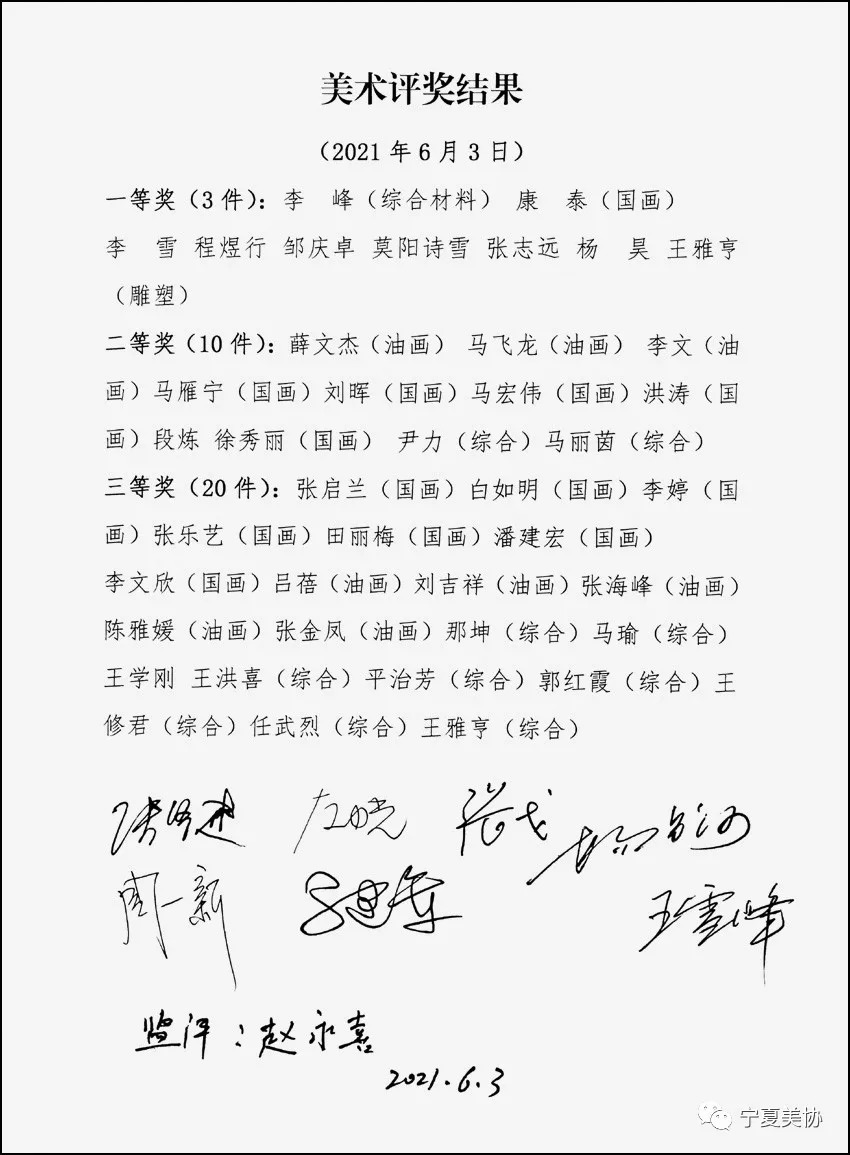 美术评奖结果
（2021 年 6 月 3 日）
一等奖（3 件）：李　峰（综合材料）　康　泰（国画）
李　雪 程煜行 邹庆卓 莫阳诗雪 张志远 杨　昊 王雅亨
（雕塑）
二等奖（10 件）：薛文杰（油画）　马飞龙（油画）　李文（油
画）马雁宁（国画）刘晖（国画）马宏伟（国画）洪涛（国
画）段炼 徐秀丽（国画）　尹力（综合）马丽茵（综合）
三等奖（20 件）：张启兰（国画）白如明（国画）李婷（国
画）张乐艺（国画）田丽梅（国画）潘建宏（国画）
李文欣（国画）吕蓓（油画）刘吉祥（油画）张海峰（油画）
陈雅媛（油画）张金凤（油画）那坤（综合）马瑜（综合）
王学刚 王洪喜（综合）平治芳（综合）郭红霞（综合）王
修君（综合）任武烈（综合）王雅亨（综合）
周一新 王雪峰
监评：赵永喜
2021.6.3
宁夏美协